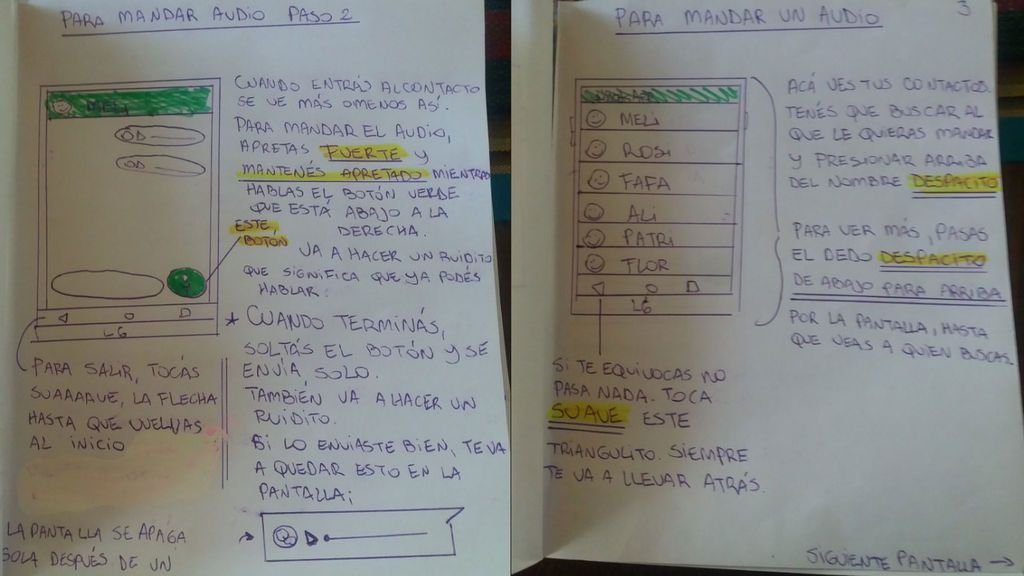 PARA MANDAR AUDIO PASO 2
CUANDO ENTRÁS AL CONTACTO
SE VE MÁS O MENOS ASÍ.
PARA MANDAR EL AUDIO,
APRETAS FUERTE Y
MANTENÉS APRETADO MIENTRAS
HABLAS EL BOTÓN VERDE
QUE ESTÁ ABAJO A LA
DERECHA.
ESTE
BOTÓN
VA A HACER UN RUIDITO
QUE SIGNIFICA QUE YA PODÉS
HABLAR.
★ CUANDO TERMINÁS,
SOLTÁS EL BOTÓN Y SE
ENVÍA SOLO.
TAMBIÉN VA A HACER UN
RUIDITO.
SI LO ENVIASTE BIEN, TE VA
A QUEDAR ESTO EN LA
PANTALLA:
MELI
LG
PARA SALIR, TOCÁS
SUAAAAVE, LA FLECHA
HASTA QUE VUELVAS
AL INICIO
LA PANTALLA SE APAGA
SOLA DESPUÉS DE UN
PARA MANDAR UN AUDIO
3
MELI
ROSI
FAFA
ALI
PATRI
FLOR
LG
ACÁ VES TUS CONTACTOS.
TENÉS QUE BUSCAR AL
QUE LE QUIERAS MANDAR
Y PRESIONAR ARRIBA
DEL NOMBRE DESPACITO
PARA VER MÁS, PASAS
EL DEDO DESPACITO
DE ABAJO PARA ARRIBA
POR LA PANTALLA, HASTA
QUE VEAS A QUIEN BUSCAS.
SI TE EQUIVOCAS NO
PASA NADA. TOCA
SUAVE ESTE
TRIANGULITO. SIEMPRE
TE VA A LLEVAR ATRÁS.
SIGUIENTE PANTALLA →